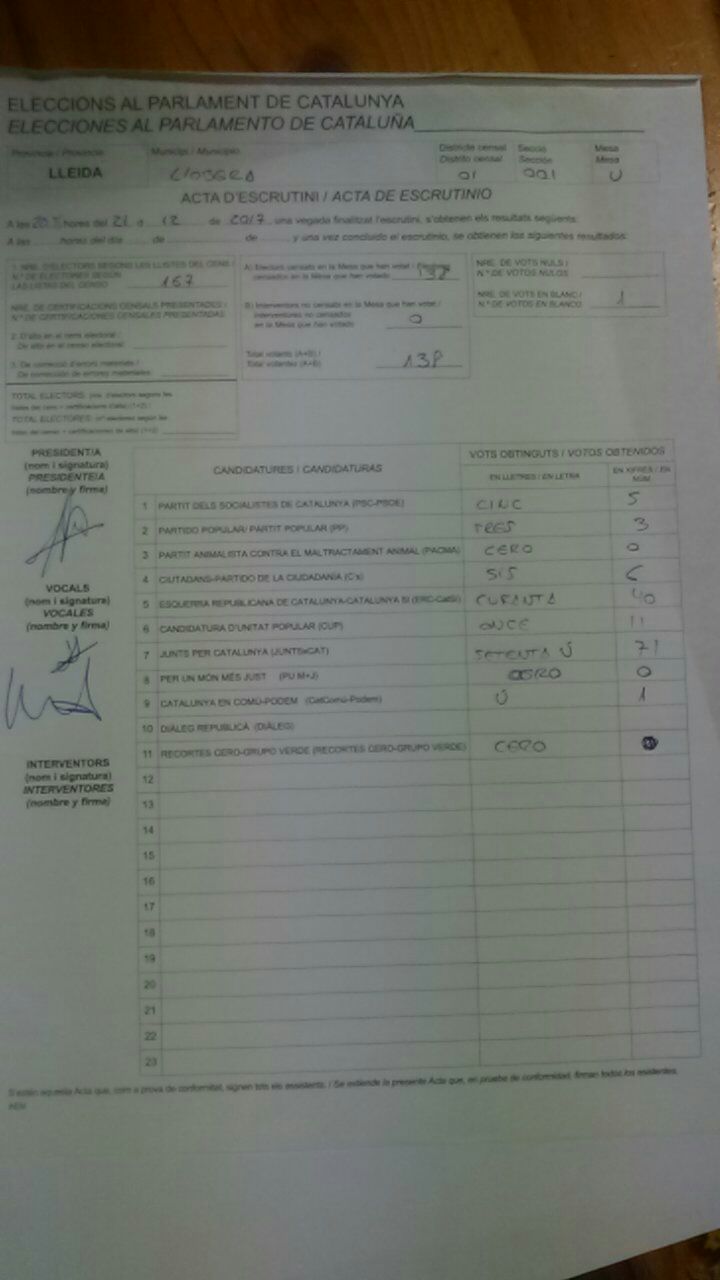 ELECCIONS AL PARLAMENT DE CATALUNYA
ELECCIONES AL PARLAMENTO DE CATALUÑA
Provincia / Provincia Municipi / Municipio Districte censal Secció Mesa
Distrito censal Sección Mesa
LLEIDA 01 001 U
ACTA D'ESCRUTINI / ACTA DE ESCRUTINIO
A les hores del 21 d 12 de 2017, una vegada finalitzat l'escrutini, s'obtenen els resultats següents:
A las hores del día de de y una vez concluido el escrutinio, se obtienen los siguientes resultados:
1. NRE. D'ELECTORS SEGONS LES LLISTES DEL CENS /
N.º DE ELECTORES SEGÚN
LAS LISTAS DEL CENSO 167
NRE. DE CERTIFICACIONS CENSALS PRESENTADES /
N.º DE CERTIFICACIONES CENSALES PRESENTADAS
2. D'alta en el cens electoral /
De alta en el censo electoral
3. De correcció d'errors materials /
De corrección de errores materiales
TOTAL ELECTORS:
TOTAL ELECTORES:
A) Electors censats en la Mesa que han votat /
censados en la Mesa que han votado
B) Interventors no censats en la Mesa que han votat /
Interventores no censados
en la Mesa que han votado 0
Total votants (A+B) /
Total votantes (A+B) 138
NRE. DE VOTS NULS /
N.º DE VOTOS NULOS
NRE. DE VOTS EN BLANC /
N.º DE VOTOS EN BLANCO 1
PRESIDENT/A
(nom i signatura)
PRESIDENTE/A
(nombre y firma)
VOCALS
(nom i signatura)
VOCALES
(nombre y firma)
INTERVENTORS
(nom i signatura)
INTERVENTORES
(nombre y firma)
CANDIDATURES / CANDIDATURAS VOTS OBTINGUTS / VOTOS OBTENIDOS
EN LLETRES / EN LETRA EN XIFRES / EN NÚM.
1 PARTIT DELS SOCIALISTES DE CATALUNYA (PSC-PSOE) CINC 5
2 PARTIDO POPULAR/ PARTIT POPULAR (PP) TRES 3
3 PARTIT ANIMALISTA CONTRA EL MALTRACTAMENT ANIMAL (PACMA) CERO 0
4 CIUTADANS-PARTIDO DE LA CIUDADANÍA (C's) SIS 6
5 ESQUERRA REPUBLICANA DE CATALUNYA-CATALUNYA SÍ (ERC-CatSí) CURANTA 40
6 CANDIDATURA D'UNITAT POPULAR (CUP) ONCE 11
7 JUNTS PER CATALUNYA (JUNTSxCAT) SETENTA Ú 71
8 PER UN MÓN MÉS JUST (PUM+J) 0
9 CATALUNYA EN COMÚ-PODEM (CatComú-Podem) Ú 1
10 DIÀLEG REPUBLICÀ (DIÀLEG)
11 RECORTES CERO-GRUPO VERDE (RECORTES CERO-GRUPO VERDE) CERO
12
13
14
15
16
17
18
19
20
21
22
23
S'estén aquesta Acta que, com a prova de conformitat, signen tots els assistents. / Se extiende la presente Acta que, en prueba de conformidad, firman todos los asistentes.